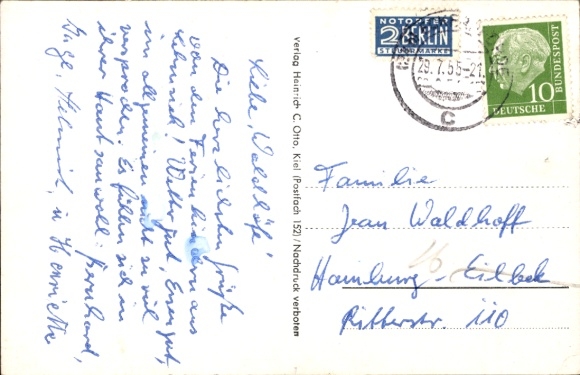 Liebe Waldhöfe!
Die herzlichsten Grüße
von den Ferienkindern aus
Wetter gut, Essen gut,
im allgemeinen nicht zu viel
versprochen. Es fühlen sich in
ihrer Haut sauwohl: Bernhard,
Inge, Helmut, u. Henriette
Verlag Heinrich C. Otto, Kiel (Postfach 152) / Nachdruck verboten
NOTOPFER
2 BERLIN
STEUERMARKE
29.7.55-21
C
10
DEUTSCHE
BUNDESPOST
Familie
Jean Waldhoff
Hamburg - Eilbek
Ritterstr. 110